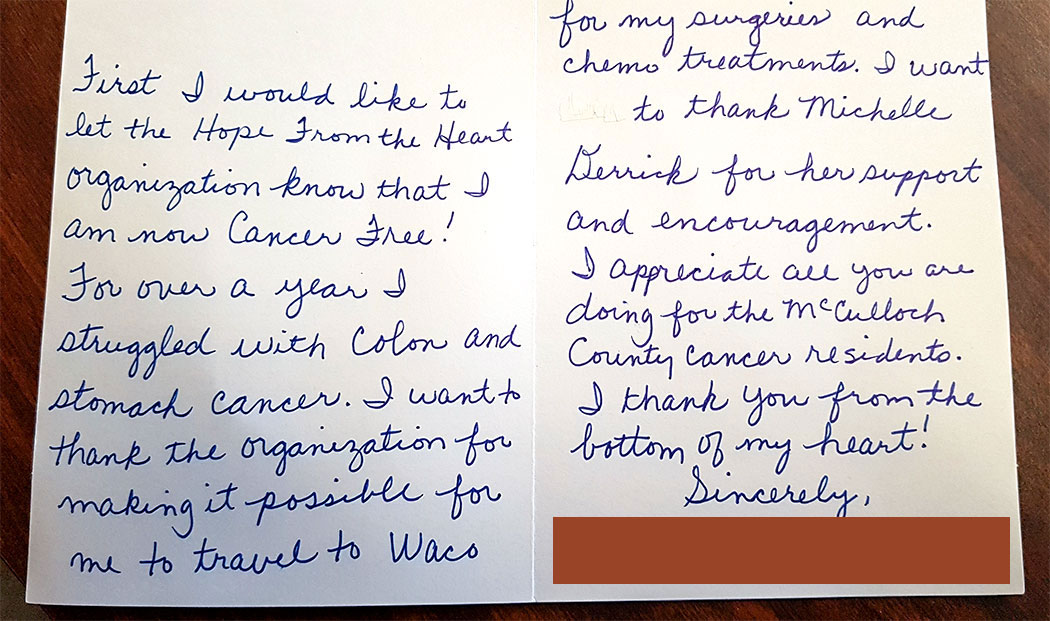 First I would like to
let the Hope From the Heart
organization know that I
am now Cancer Free!
For over a year I
struggled with Colon and
stomach cancer. I want to
thank the organization for
making it possible for
me to travel to Waco
for my surgeries and
chemo treatments. I want
to thank Michelle
Derrick for her support
and encouragement.
I appreciate all you are
doing for the McCulloch
County cancer residents.
I thank you from the
bottom of my heart!
Sincerely,